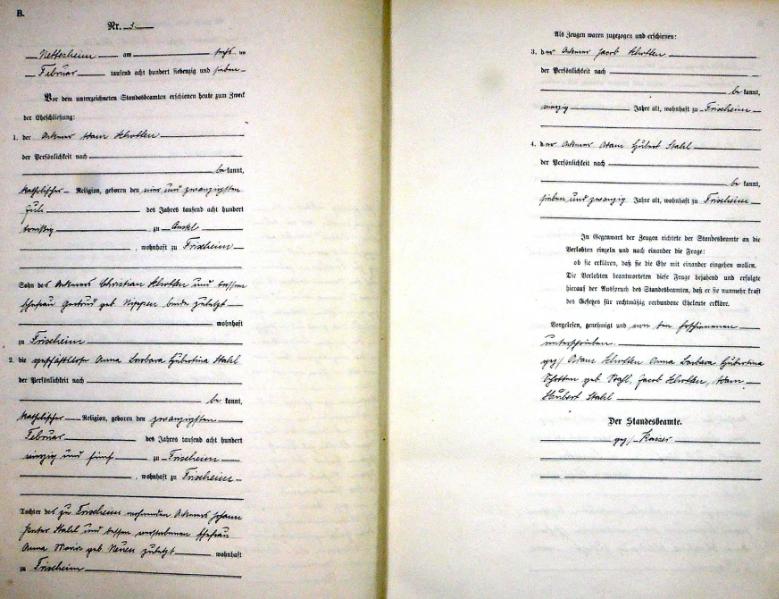 B.
Nr. 3
Nettersheim am sechs ten
Februar tausend acht hundert siebenzig und sieben
Vor dem unterzeichneten Standesbeamten erschienen heute zum Zweck
der Eheschließung:
1. der Ackerer Adam
der Persönlichkeit nach
be kannt,
katholischer Religion, geboren den vier und zwanzigsten
Juli des Jahres tausend acht hundert
zu
, wohnhaft zu Frixheim
Sohn des Ackerers Christian und dessen
Ehefrau Gertrud geb. beide zuletzt
wohnhaft
zu Frixheim
2. die geschäftslose Anna Barbara Hubertina Stahl
der Persönlichkeit nach
be kannt,
katholischer Religion, geboren den zwanzigsten
Februar des Jahres tausend acht hundert
vierzig und fünf zu Frixheim
, wohnhaft zu Frixheim
Tochter des zu Frixheim wohnenden Ackerers Johann
Peter Stahl und dessen verstorbenen Ehefrau
Anna Maria geb. zuletzt wohnhaft
zu Frixheim
Als Zeugen waren zugezogen und erschienen:
3. der Ackerer Jacob
der Persönlichkeit nach
be kannt,
vierzig Jahre alt, wohnhaft zu Frixheim
4. der Ackerer Adam Hubert Stahl
der Persönlichkeit nach
be kannt,
sieben und zwanzig Jahre alt, wohnhaft zu Frixheim
In Gegenwart der Zeugen richtete der Standesbeamte an die
Verlobten einzeln und nach einander die Frage:
ob sie erklären, daß sie die Ehe mit einander eingehen wollen.
Die Verlobten beantworteten diese Frage bejahend und erfolgte
hierauf der Ausspruch des Standesbeamten, daß er sie nunmehr kraft
des Gesetzes für rechtmäßig verbundene Eheleute erkläre.
Vorgelesen, genehmigt und von den Erschienenen
unterschrieben.
gez. Adam Anna Barbara Hubertina
geb. Stahl, Jacob Adam
Hubert Stahl
Der Standesbeamte.
gez. Kaiser